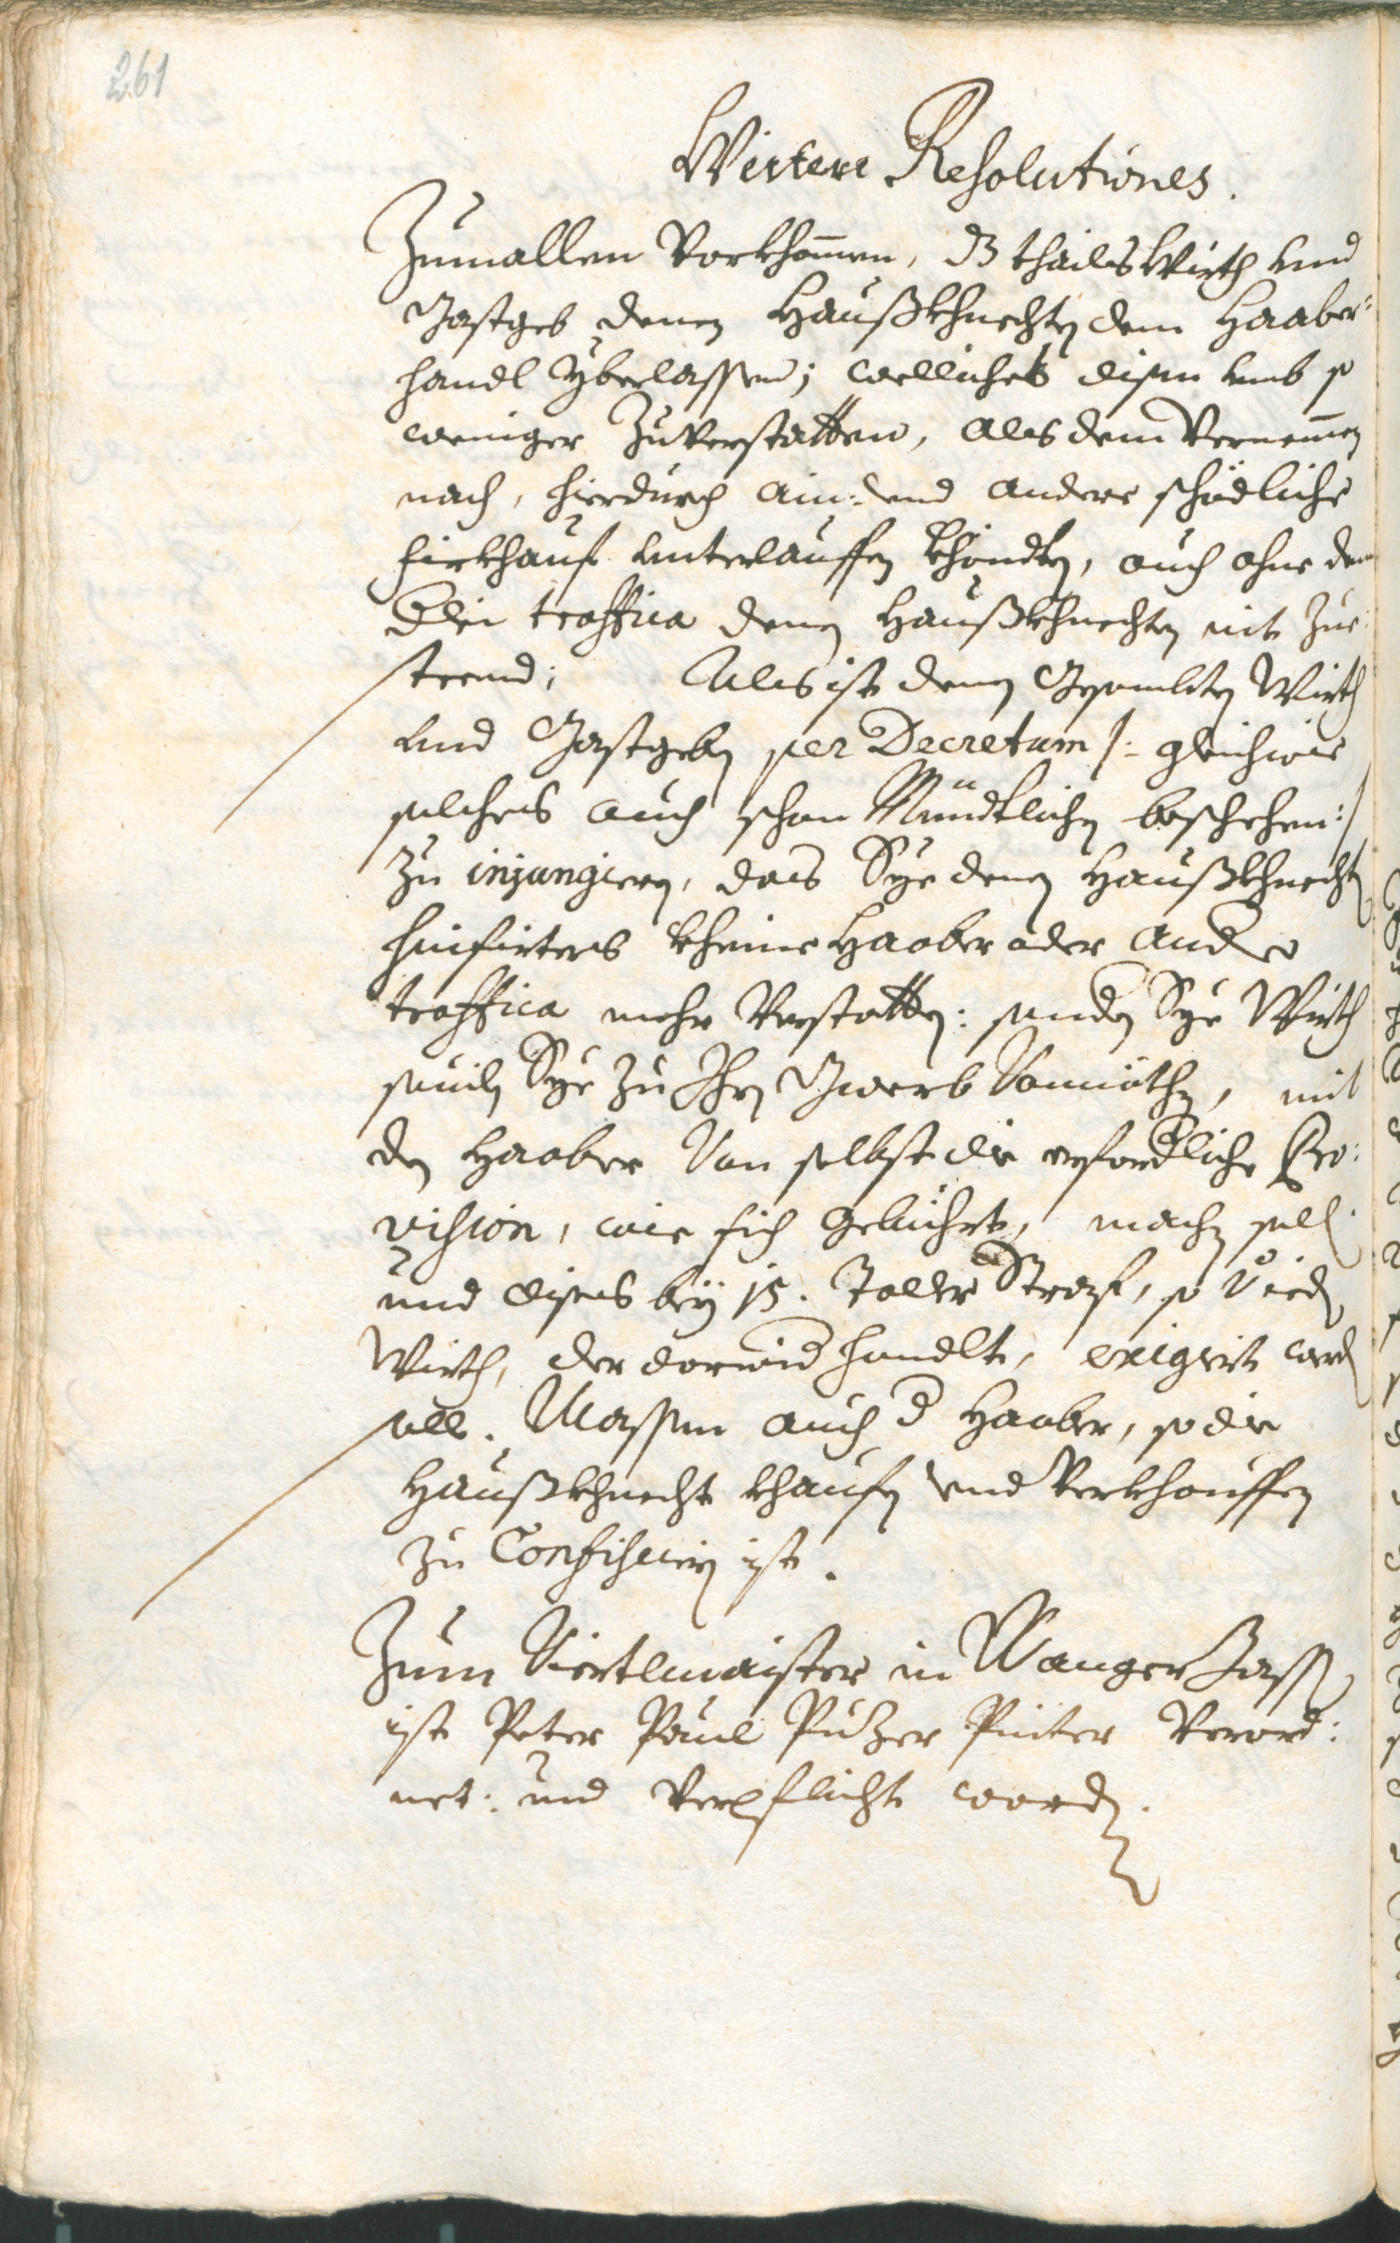 261
Weitere Resolutiones.
Zumallen Vorkhommen, dz thails Würth und
Gastgeb denen Haußkhnechten dem Haaber=
handl yberlassen; welliches disen umb so
weniger zuverstatten, als dem Vernemmen
nach, hierdurch ain: und andere schädliche
Firkhauf unterlauffen khöndten, auch ohne dem
die traffica denen Haußkhnechten nit zue
steend; Als ist denen Gesambten Würth
und Gastgeben per Decretum /: gleichwie
solches auch schon Mündtlichen beschehen :/
zu injungiern, das Sye denen Haußkhnechten
hinfirters kheine Haaber oder andere
traffica mehr verstatten: sonder Sye Würth
sovil Sye zu Ihrn Gwerb vonnöthen, mit
den Haaber von selbst die erforderliche Pro:
vision, wie sich gebührt, machen sollen
und dises bey 15. Taller Straf, so von ieden
Würth, der darwider handlte, exigiert werden
solle. Massen auch der Haaber, so die
Haußkhnecht khaufen und verkhauffen
zu Confiscieren ist.
Zum Viertlmaister in Wanger Gassen
ist Peter Paul Puzer Pinter verord:
net: und verpflicht worden.